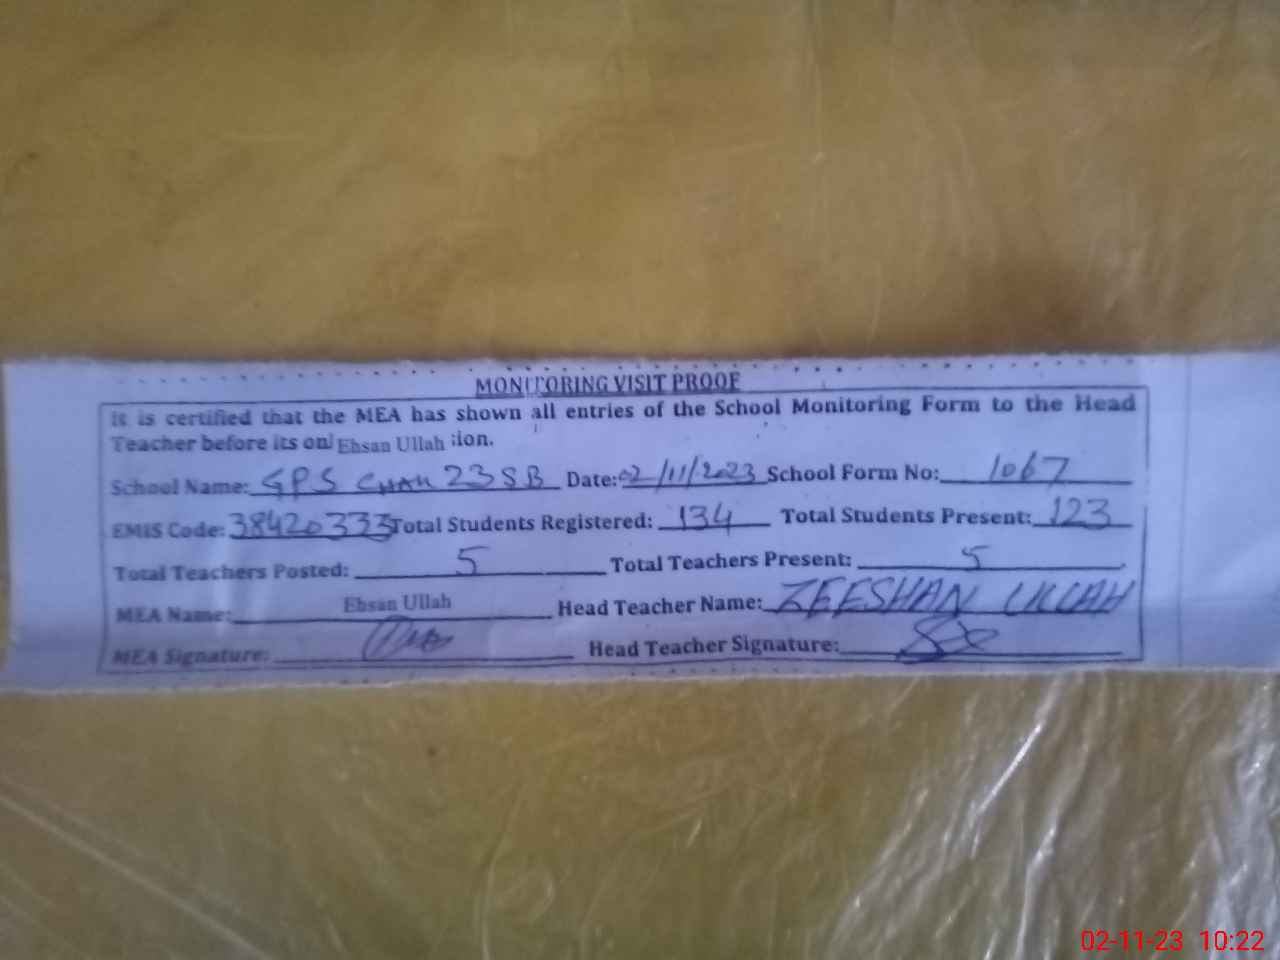 MONITORING VISIT PROOF
It is certified that the MEA has shown all entries of the School Monitoring Form to the Head
Teacher before its onl Ehsan Ullah ion.
School Name: GPS CHAK 23 SB Date: 02/11/2023 School Form No: 1067
EMIS Code: 38420333 Total Students Registered: 134 Total Students Present: 123
Total Teachers Posted: 5 Total Teachers Present: 5
MEA Name: Ehsan Ullah Head Teacher Name: ZEESHAN ULLAH
MEA Signature: Head Teacher Signature:
02-11-23 10:22